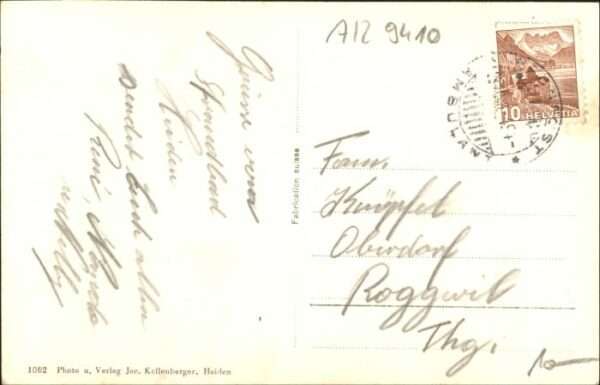 AR 9410
10 HELVETIA
AMBULANT
Grüsse vom
Strandbad
Heiden
sendet Euch allen
René,
Fabrication suisse
Fam.
Knüpfel
Oberdorf
Roggwil
Thg.
1062 Photo u. Verlag Jor. Kellenberger, Heiden